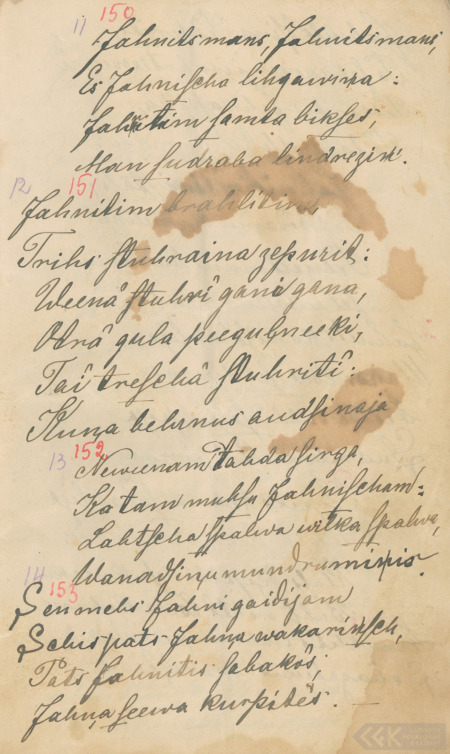 11 150
Jahnits mans, Jahnits mans,
Es Jahnischa lihgawina:
Jahnitim samta bikses,
Man sudraba lindrezini.
12 151
Jahnitim brahlitim
Trihs stuhraina zepurit:
Weenâ stuhrî gani gana,
Otrâ gula peegulneeki,
Taî treschâ stuhritî:
Kuņa behrnus audsinaja
13 152
Neweenam tahda sirga,
Ka tam muhsu Jahnischam:
Lahtscha spalwa wilka spalwa,
Wanadsiņu mundrumiņis.
14 153
Sen mehs Jahni gaidijam
Schis pats Jahņa wakariņsch,
Pats Jahnitis sabakôs,
Jahņa seewa kurpîtês.